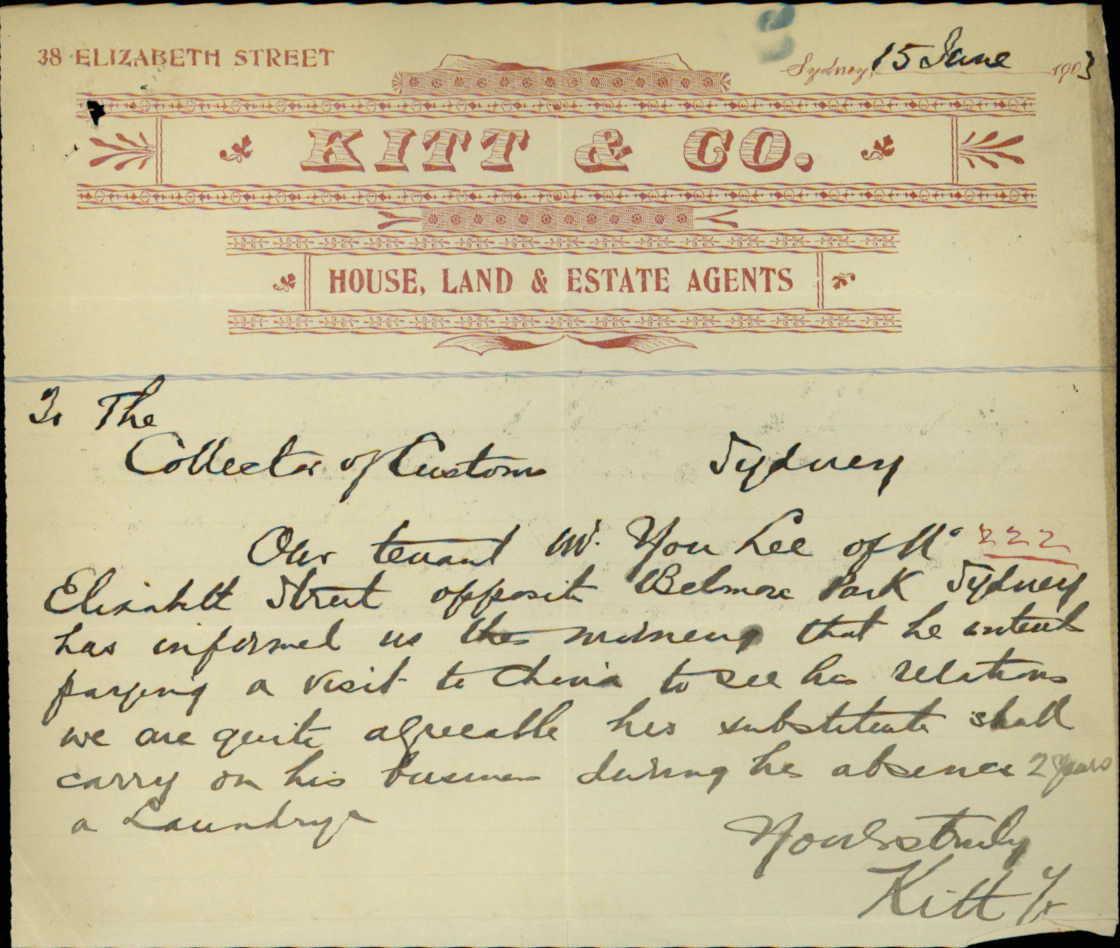 38 ELIZABETH STREET
Sydney, 15 June 1903
KITT & CO.
HOUSE, LAND & ESTATE AGENTS
To The
Collector of Customs Sydney
Our tenant Mr. You Lee of No 222
Elizabeth Street opposit Belmore Park Sydney
has informed us this morneng that he intends
paying a visit to China to see his relations
we are quite agreeable his substitute shall
carry on his business during his absence 2 years
a Laundrye
Yours truly
Kitt